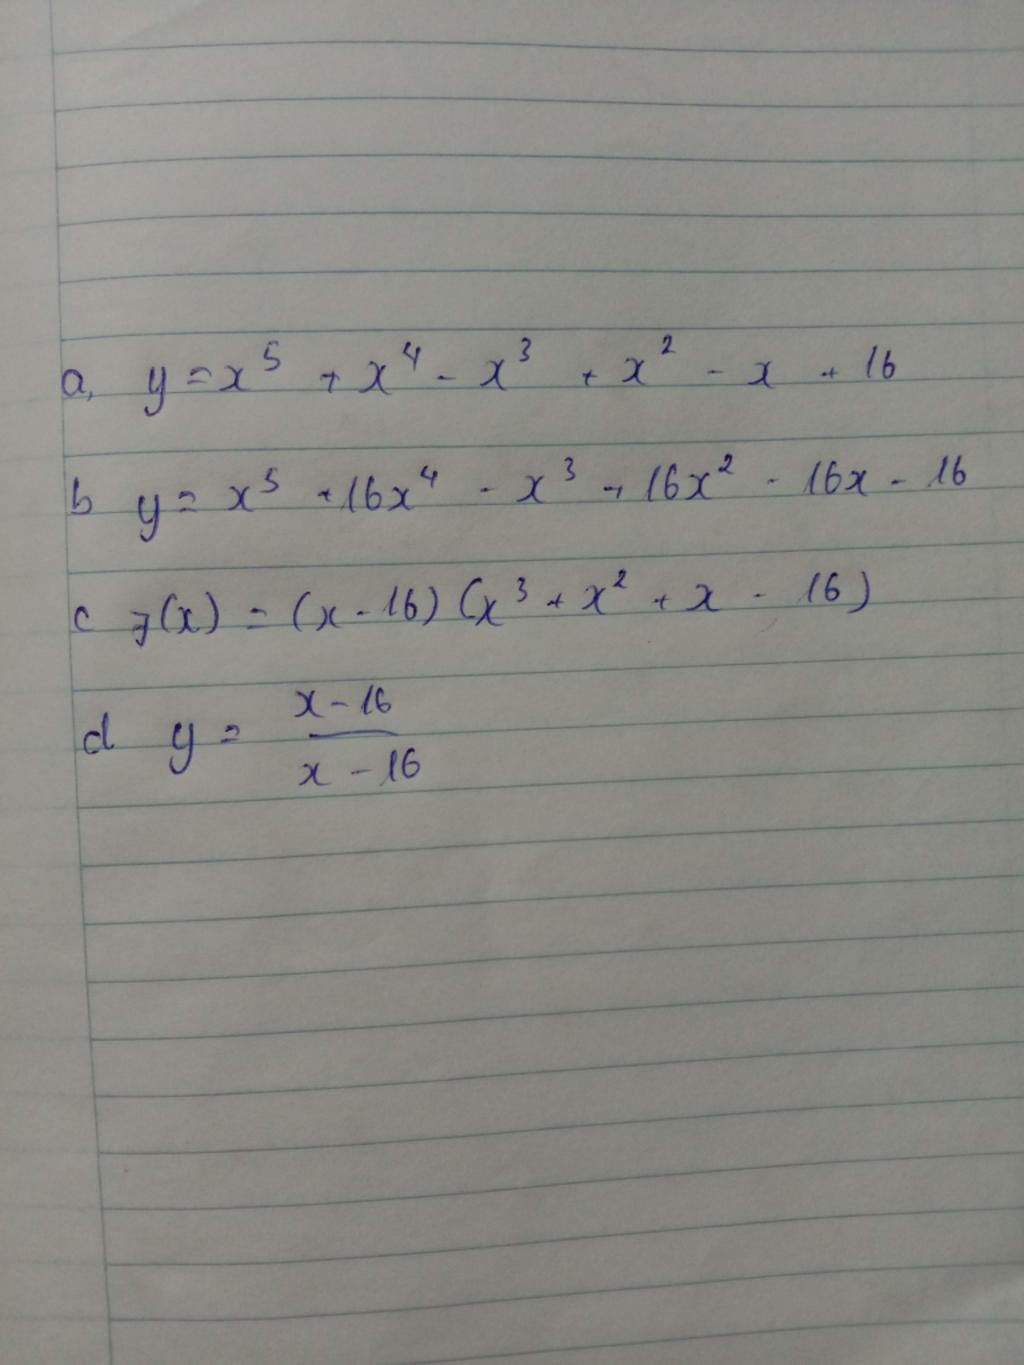 a, y = x⁵ + x⁴ - x³ + x² - x + 16
b y = x⁵ + 16x⁴ - x³ + 16x² - 16x - 16
c f(x) = (x - 16) (x³ + x² + x - 16)
d y = \frac{x - 16}{x - 16}